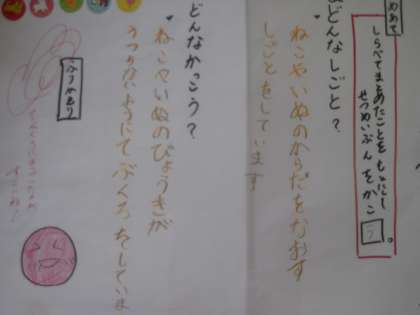 めあて
しらべてまとめたことをもとにし
せつめいぶんをかこう。
どんなしごと？
ねこやいぬのからだをなおす
しごとをしています
どんなかっこう？
ねこやいぬのびょうきが
うつらないようにてぶくろをしていま
ふりかえり